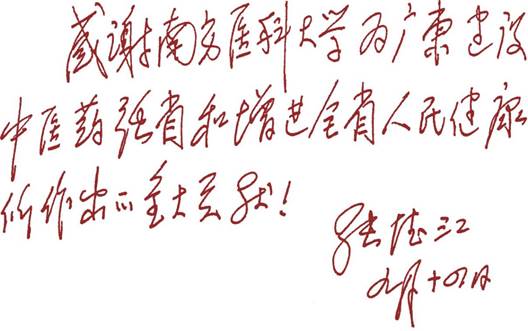 感谢南方医科大学为广东建设
中医药强省和增进全省人民健康
所作出的重大贡献！
张德江
九月十四日